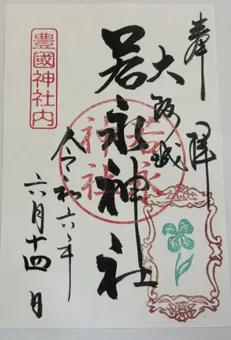 奉拝
大阪城
若永神社
令和六年
六月十四日
豊國神社内
若永神社